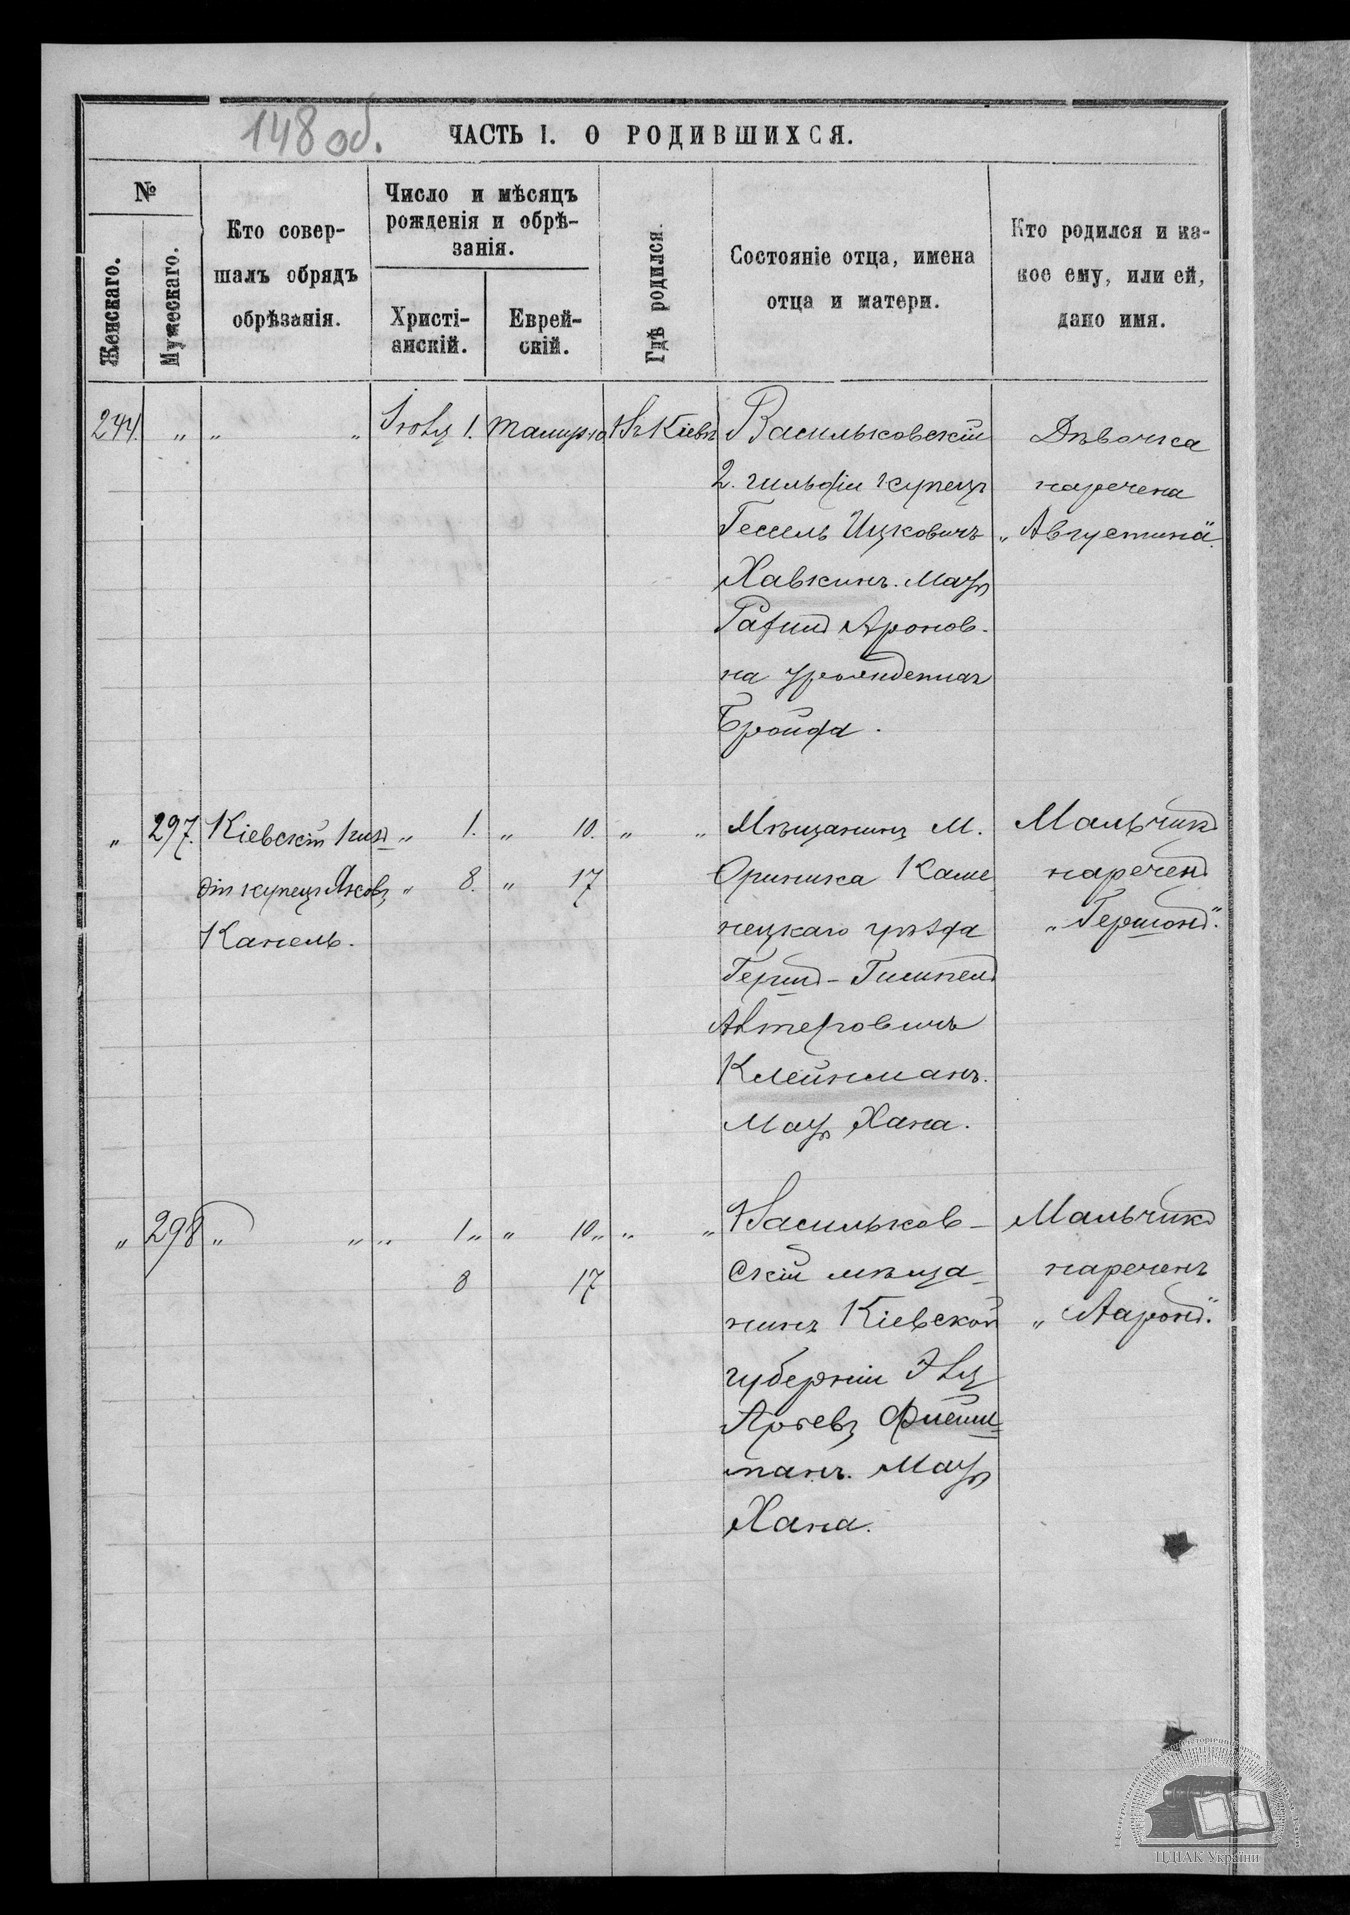 148 об.
ЧАСТЬ I. О РОДИВШИХСЯ.
№
Женскаго.
Мужескаго.
Кто совер-
шалъ обрядъ
обрѣзанія.
Число и мѣсяцъ
рожденія и обрѣ-
занія.
Христі-
анскій.
Еврей-
скій.
Гдѣ родился.
Состояніе отца, имена
отца и матери.
Кто родился и ка-
кое ему, или ей,
дано имя.
244. „ „ „ Іюля 1. 10 Въ Кіевѣ
Васильковскій
2. гильдіи купецъ
Гессель Ицковичъ
Хавкинъ. Мать
Аронов-
на урожденная
Бройда.
Дѣвочка
наречена
„Августина“.
„ 297. Кіевскій 1 гиль
діи купецъ Яковъ
Канель.
„ 1. „ 10. „ „
„ 8. „ 17
Мѣщанинъ М.
Орининa Каме
нецкаго уѣзда
Гершъ-Гимпель
Алтеровичъ
Клейнманъ.
Мать Хана.
Мальчикъ
нареченъ
„Гершонъ“.
„ 298 „ „ „ 1 „ „ 10 „ „ „
8 17
Васильков-
скій мѣща-
нинъ Кіевской
губерніи Эля
Арьевъ Флейш-
манъ. Мать
Хана.
Мальчикъ
нареченъ
„Ааронъ“.
ЦДІАК України